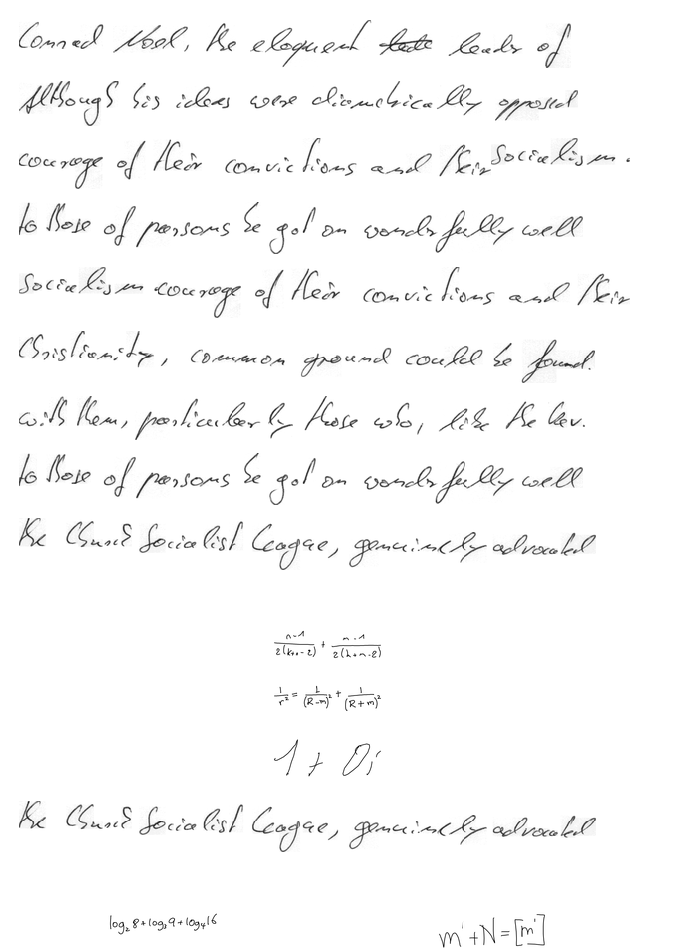 Conrad Noel, the eloquent leader of
Although his ideas were diametrically opposed
courage of their convictions and their Socialism.
to those of parsons he got on wonderfully well
Socialism courage of their convictions and their
Christianity, common ground could be found.
with them, particularly those who, like the Rev.
to those of parsons he got on wonderfully well
the Church Socialist League, genuinely advocated
\frac{n-1}{2(k+n-2)} + \frac{n-1}{2(k+n-2)}
\frac{1}{r^2} = \frac{1}{(R-m)^2} + \frac{1}{(R+m)^2}
1 + 0i
the Church Socialist League, genuinely advocated
log_2 8 + log_3 9 + log_4 16
m' + N = [m']